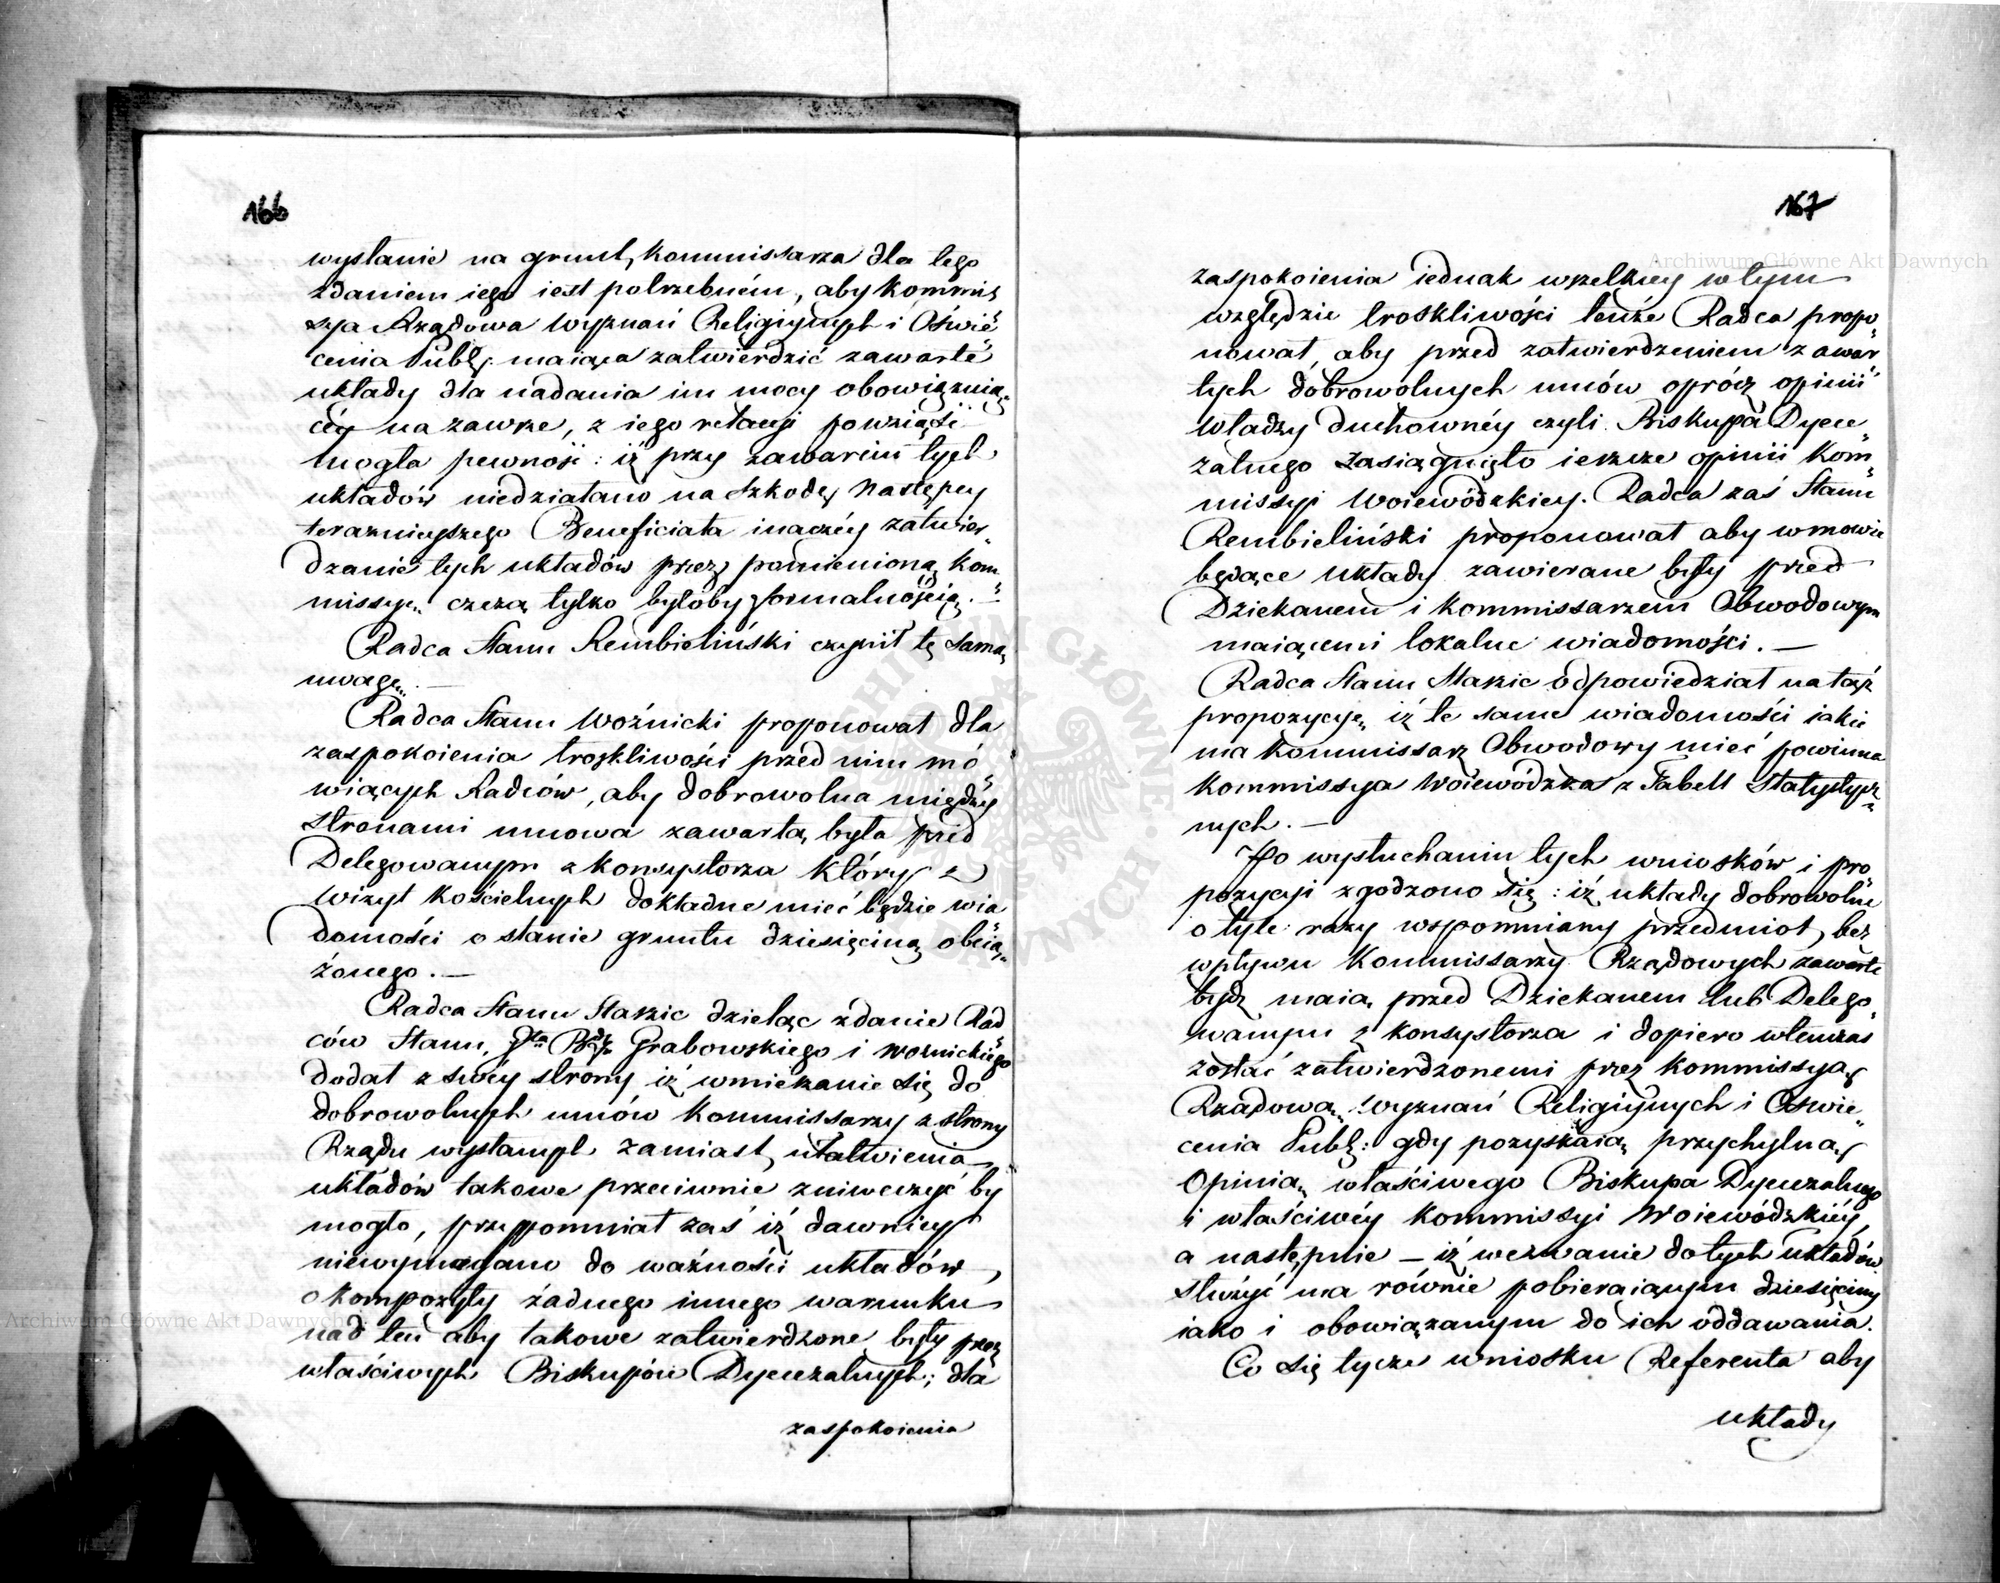 166
wysłanie na grunt, Kommissarza dla tego
zdaniem iego iest potrzebném, aby Kommis
sya Rządowa Wyznań Religijnych i Oświe
cenia Publ: maiąca zatwierdzić zawarte
układy dla nadania im mocy obowiązuią
céy na zawsze, z iego relacyi powziąść
mogła pewność: iż przy zawarciu tych
układów niedziałano na szkodę Następcy
teraznieyszego Beneficiata inaczéy zatwier
dzanie tych układów przez pomienioną Kom
missyę czczą tylko byłoby formalnością. —
Radca Stanu Rembieliński czynił tę samą
uwagę. —
Radca Stanu Woźnicki proponował dla
zaspokoienia troskliwości przed nim mó
wiących Radców, aby dobrowolna między
stronami umowa zawartą była przed
Delegowanym z Konsystorza który z
wizyt Kościelnych dokładne mieć będzie wia
domości o stanie gruntu dziesięciną obcią
żonego. —
Radca Stanu Staszic dzieląc zdanie Rad
ców Stanu, Grabowskiego i Woznickiego
dodał z swéy strony iż wmieszanie się do
dobrowolnych umów Kommissarzy z strony
Rządu wysłanych zamiast ułatwienia
układów takowe przeciwnie zniweczyć by
mogło, przypomniał zaś iż dawniey
niewymagano do ważności układów
o kompozyty żadnego innego warunku
nad ten aby takowe zatwierdzone były przez
właściwych Biskupów Dyecezalnych; dla
zaspokoienia
167
zaspokoienia iednak wszelkiey w tym
względzie troskliwości tenże Radca propo
nował, aby przed zatwierdzeniem zawar
tych dobrowolnych umów oprócz opinii
władzy duchownéy czyli Biskupa Dyece
zalnego zasiągnięto ieszcze opinii Kom
missyi Woiewódzkiey. Radca zaś Stanu
Rembieliński proponował aby w mowie
będące układy zawierane były przed
Dziekanem i Kommissarzem Obwodowym
maiącemi lokalne wiadomości. —
Radca Stanu Staszic odpowiedział na tąż
propozycyę iż te same wiadomości iakie
ma Kommissarz Obwodowy mieć powinna
Kommissya Woiewódzka z Tabell Statystycz
nych. —
Po wysłuchaniu tych wniosków i pro
pozycyi zgodzono się: iż układy dobrowolne
o tyle razy wspomniany przedmiot, bez
wpływu Kommissarzy Rządowych zawarte
bydź maią przed Dziekanem lub Delego
wanym z Konsystorza i dopiero wtenczas
zostać zatwierdzonemi przez Kommissyą
Rządową Wyznań Religijnych i Oswie
cenia Publ: gdy pozyskaią przychylną
Opinią właściwego Biskupa Dyecezalnego
i właściwéy Kommissyi Woiewódzkiéy,
a następnie — iż wezwanie do tych układów
służyć ma równie pobieraiącym dziesięciny
iako i obowiązanym do ich oddawania.
Co się tycze wniosku Referenta aby
układy
Archiwum Główne Akt Dawnych
Archiwum Główne Akt Dawnych